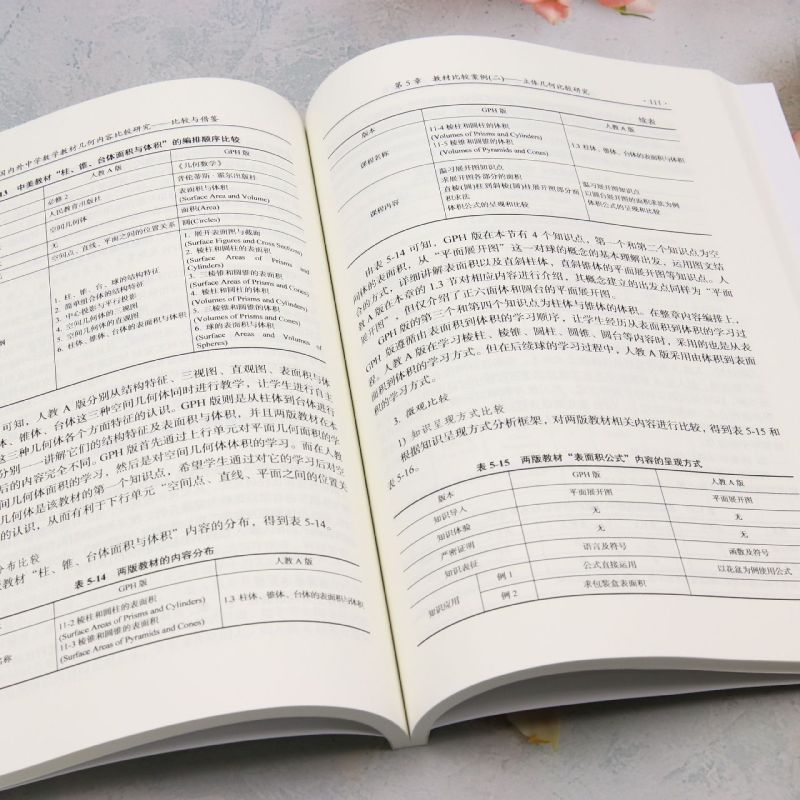 国内外中学数学教材几何内容比较研究——比较与借鉴
中美教材“柱、锥、台体面积与体积”的编排顺序比较
人教 A 版
GPH 版
必修 2
《几何数学》
人民教育出版社
普伦蒂斯·霍尔出版社
空间几何体
表面积与体积
(Surface Area and Volume)
无
面积(Area)
空间点、直线、平面之间的位置关系
圆(Circles)
1. 柱、锥、台、球的结构特征
2. 简单组合体的结构特征
3. 中心投影与平行投影
4. 空间几何体的三视图
5. 空间几何体的直观图
6. 柱体、锥体、台体的表面积与体积
1. 展开表面图与截面
(Surface Figures and Cross Sections)
2. 棱柱和圆柱的表面积
(Surface Areas of Prisms and
Cylinders)
3. 三棱锥和圆锥的表面积
(Surface Areas of Pyramids and Cones)
4. 棱柱和圆柱的体积
(Volumes of Prisms and Cylinders)
5. 三棱锥和圆锥的体积
(Volumes of Pyramids and Cones)
6. 球的表面积与体积
(Surface Areas and Volumes of
Spheres)
可知，人教 A 版分别从结构特征、三视图、直观图、表面积与体
体、锥体、台体这三种空间几何体同时进行教学，让学生进行自主
这三种几何体各个方面特征的认识。GPH 版则是从柱体到台体进行
分别一一讲解它们的结构特征及表面积与体积，并且两版教材在本
后的内容完全不同。GPH 版首先通过上行单元对平面几何面积的学
间几何体面积的学习，然后是对空间几何体体积的学习。而在人教
几何体是该教材的第一个知识点，希望学生通过对它的学习后对空
的认识，从而有利于下行单元“空间点、直线、平面之间的位置关
分布比较
教材“柱、锥、台体面积与体积”内容的分布，得到表 5-14。
表 5-14 两版教材的内容分布
GPH 版
人教 A 版
11-2 棱柱和圆柱的表面积
(Surface Areas of Prisms and Cylinders)
11-3 棱锥和圆锥的表面积
(Surface Areas of Pyramids and Cones)
1.3 柱体、锥体、台体的表面积与体积
名称
第 5 章 教材比较案例(二)——立体几何比较研究
· 111 ·
续表
版本
GPH 版
人教 A 版
课程名称
11-4 棱柱和圆柱的体积
(Volumes of Prisms and Cylinders)
11-5 棱锥和圆锥的体积
(Volumes of Pyramids and Cones)
1.3 柱体、锥体、台体的表面积与体积
课程内容
温习展开图知识点
求展开图各部分的面积
直棱(圆)柱到斜棱(圆)柱展开图部分面
积求法
体积公式的呈现和比较
温习展开图知识点
以圆台展开图的面积求法为例
体积公式的呈现和比较
由表 5-14 可知，GPH 版在本节有 4 个知识点，第一个和第二个知识点为空
间体的表面积，从“平面展开图”这一对球的概念的基本理解出发，运用图文结
合的方式，详细讲解表面积以及直斜柱体、直斜锥体的平面展开图等知识点。人
教 A 版在本章的 1.3 节对相应内容进行介绍，其概念建立的出发点同样为“平面
展开图”，但仅介绍了正六面体和圆台的平面展开图。
GPH 版的第三个和第四个知识点为柱体与锥体的体积。在整章内容编排上，
GPH 版遵循由表面积到体积的学习顺序，让学生经历从表面积到体积的学习过
程。人教 A 版在学习棱柱、棱锥、圆柱、圆锥、圆台等内容时，采用的也是从表
面积到体积的学习方式。但在后续球的学习过程中，人教 A 版采用由体积到表面
积的学习方式。
3. 微观比较
1) 知识呈现方式比较
根据知识呈现方式分析框架，对两版教材相关内容进行比较，得到表 5-15 和
表 5-16。
表 5-15 两版教材“表面积公式”内容的呈现方式
版本
GPH 版
人教 A 版
知识导入
平面展开图
平面展开图
知识体验
无
无
严密证明
无
无
知识表征
语言及符号
函数及符号
知识应用
例 1
公式直接运用
以花盆为例使用公式
例 2
求包装盒表面积